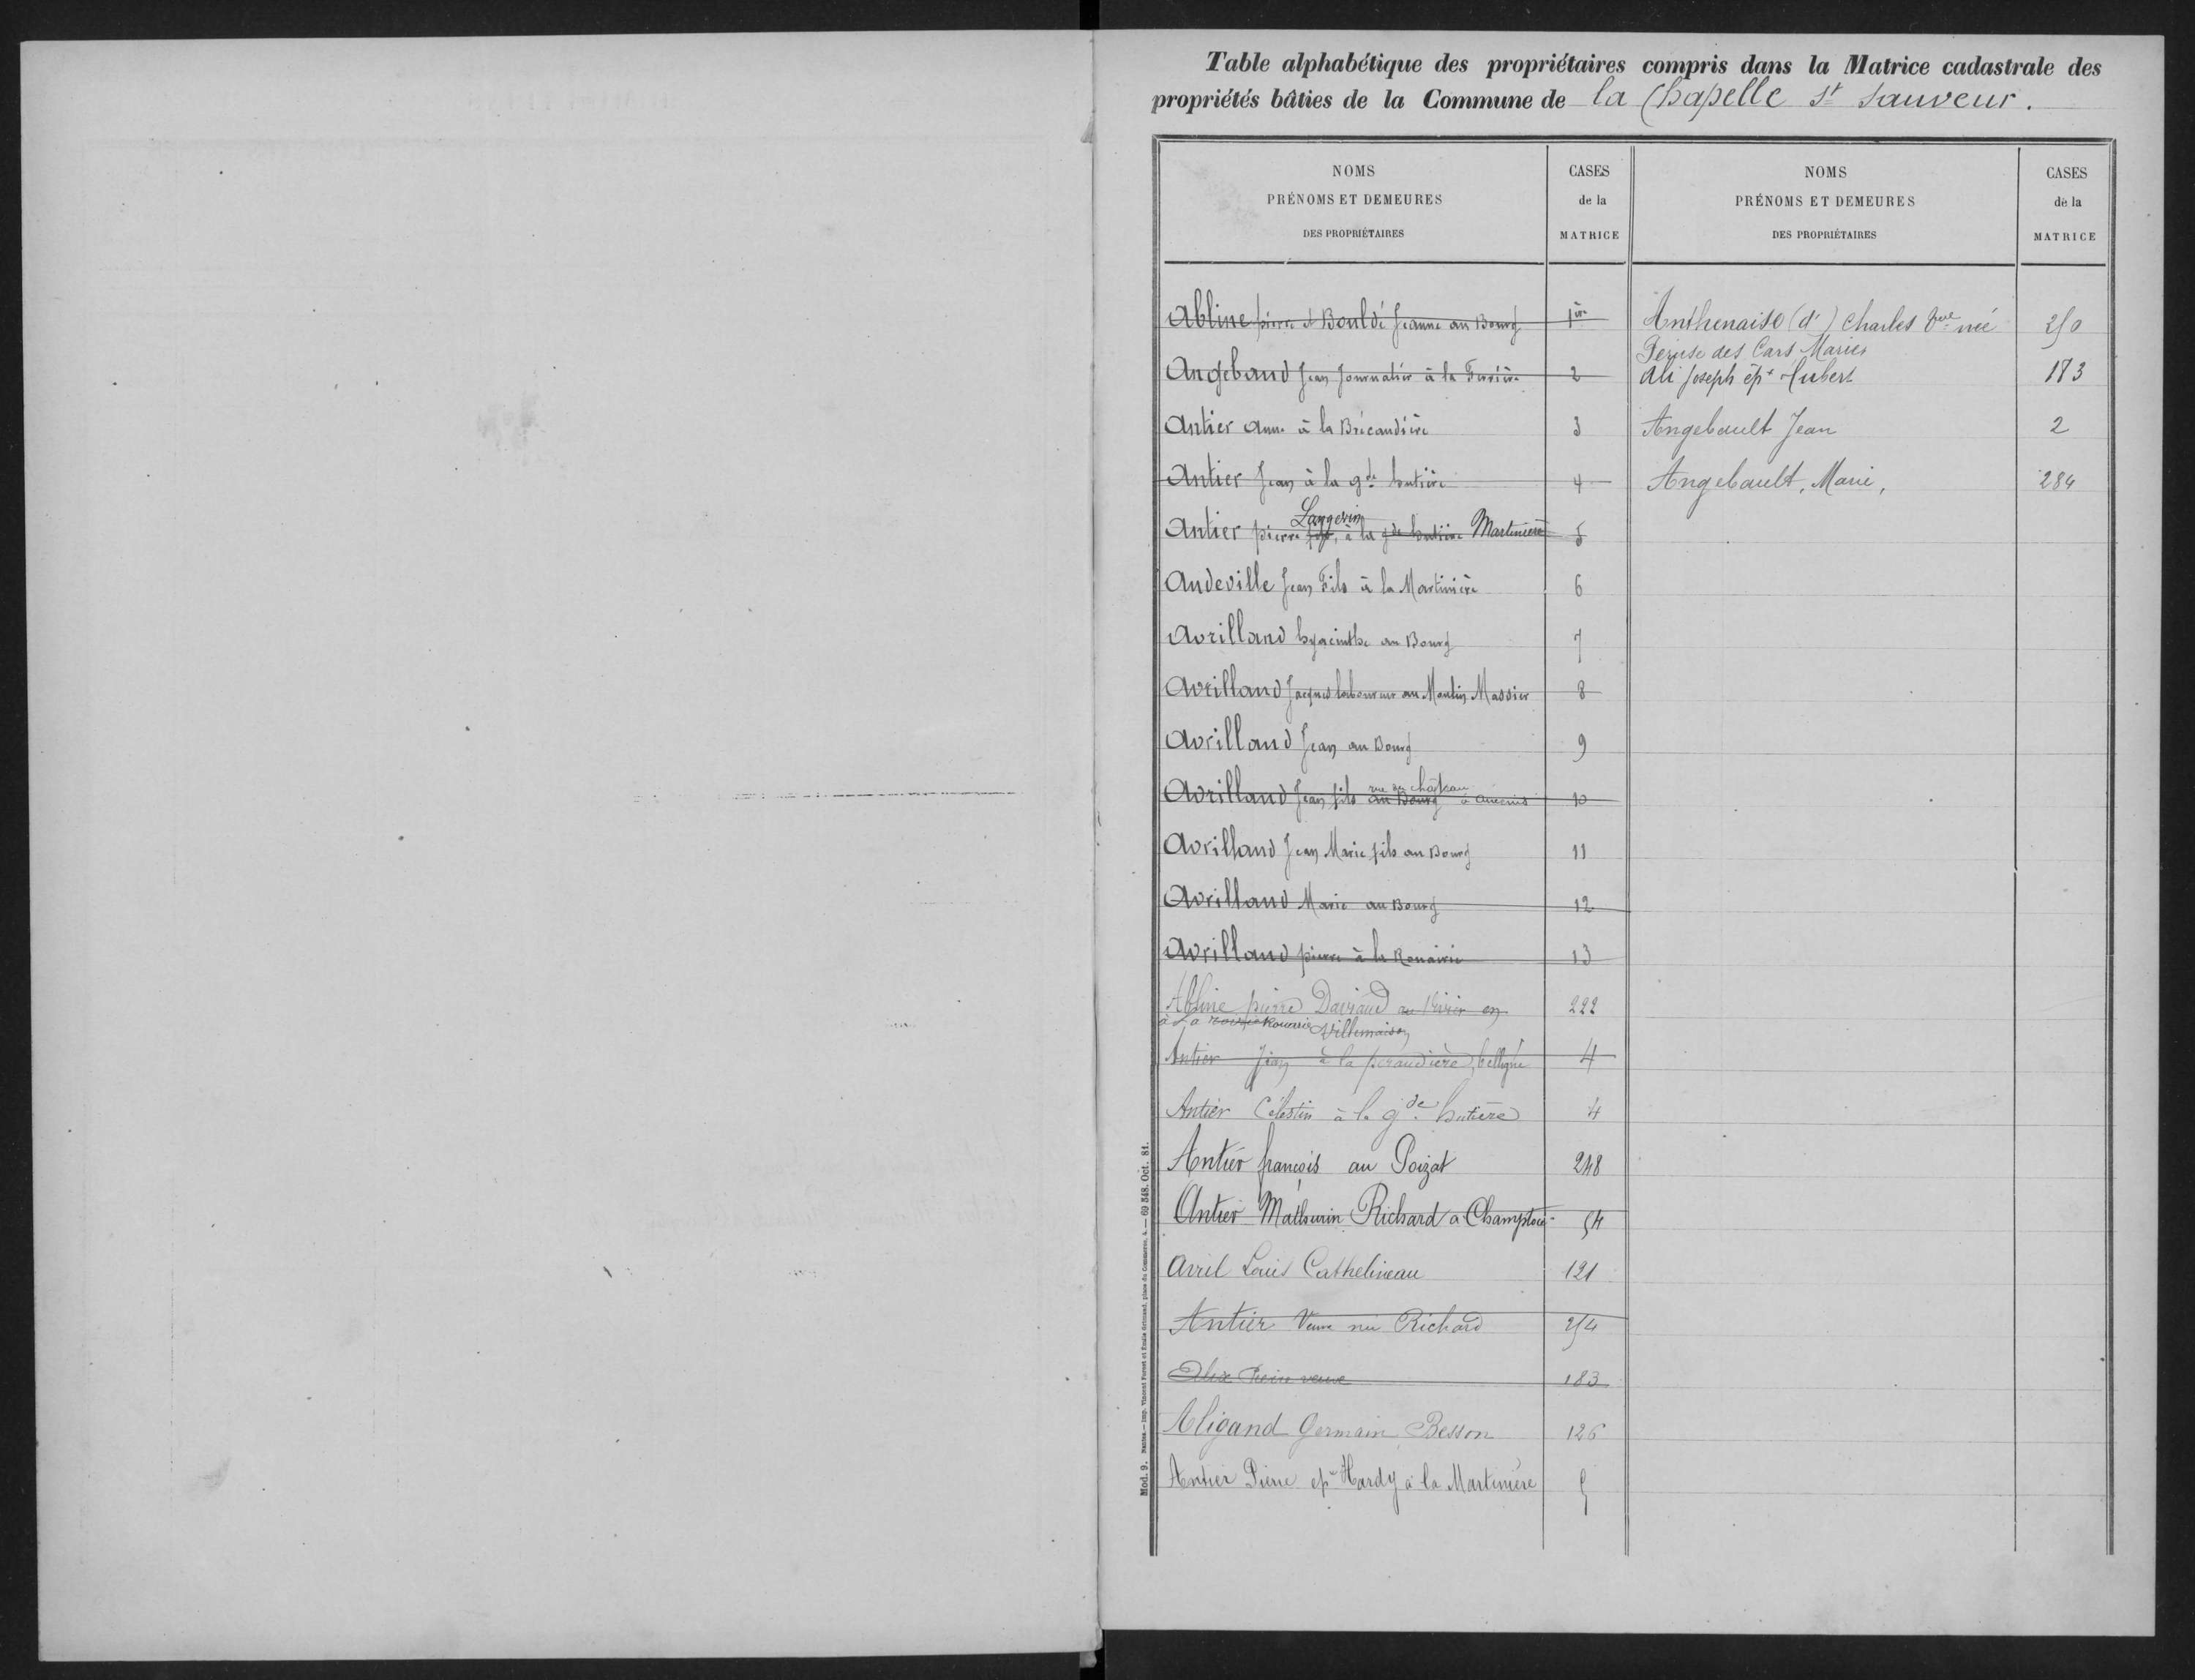 Table alphabétique des propriétaires compris dans la Matrice cadastrale des
propriétés bâties de la Commune de la Chapelle St Sauveur.
NOMS
PRÉNOMS ET DEMEURES
DES PROPRIÉTAIRES
CASES
de la
MATRICE
NOMS
PRÉNOMS ET DEMEURES
DES PROPRIÉTAIRES
CASES
de la
MATRICE
Abline pierre et Bouldé Jeanne au Bourg 1ère
Angebaud Jean Journalier à la Ferrière 2
Antier Anne à la Bricaudière 3
Antier Jean à la gde hutière 4
Langevin
Antier pierre à la gde hutière Martinière 5
Audeville Jean Fils à la Martinière 6
Avrillaud hyacinthe au Bourg 7
Avrillaud Jacques laboureur au Moulin Massier 8
Avrillaud Jean au Bourg 9
rue du château
Avrillaud Jean fils au Bourg à Ancenis 10
Avrillaud Jean Marie fils au Bourg 11
Avrillaud Marie au Bourg 12
Avrillaud pierre à la Renairie 13
Abline pierre Daviaud au Vivier en 222
à La Villemaison
Antier Jean à la peraudière, belligné 4
Antier Célestin à la gde hutière 4
Antier françois au Poizat 248
Antier Mathurin Richard à Champtocé 54
Avril Louis Cathelineau 121
Antier Veuve née Richard 254
veuve 183
Aligand Germain Besson 126
Antier Pierre ep Hardy à la Martinière 5
Anthenaise (d') Charles Vve née 250
Peruse des Cars Marie
Ali Joseph épx Hubert 183
Angebault Jean 2
Angebault, Marie, 284
Mod. 9. Nantes — Imp. Vincent Forest et Émile Grimaud, place du Commerce, 4. — 69 348. Oct. 81.